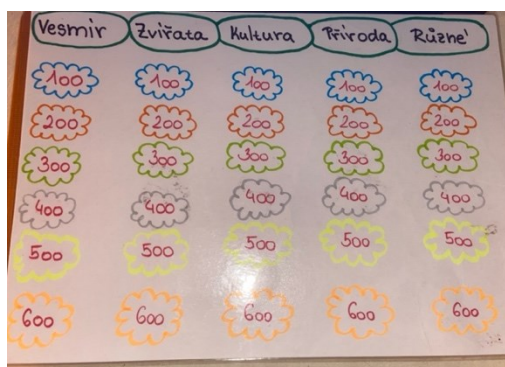 Vesmír Zvířata Kultura Příroda Různé
100 100 100 100 100
200 200 200 200 200
300 300 300 300 300
400 400 400 400 400
500 500 500 500 500
600 600 600 600 600